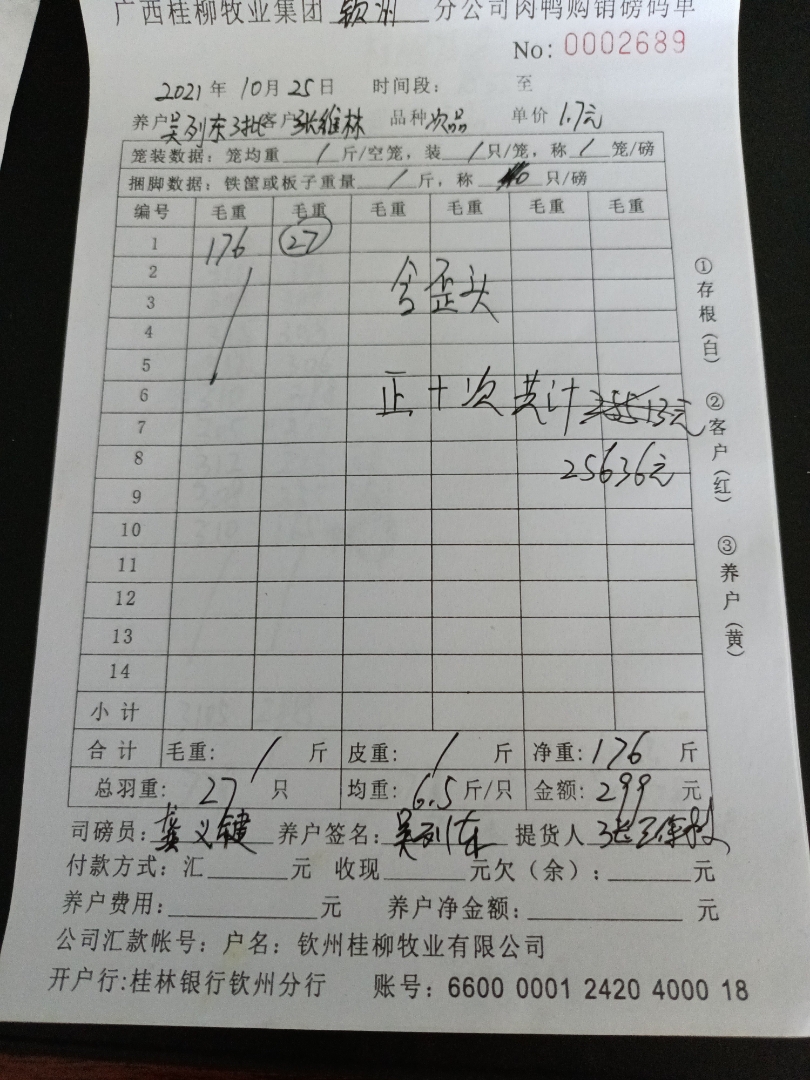 广西桂柳牧业集团 钦州 分公司肉鸭购销磅码单
No: 0002689
2021 年 10 月 25 日 时间段: 至
养户 吴列东3批 客户 张维林 品种 次品 单价 1.7元
笼装数据: 笼均重 / 斤/空笼, 装 / 只/笼, 称 / 笼/磅
捆脚数据: 铁筐或板子重量 / 斤, 称 只/磅
编号 毛重 毛重 毛重 毛重 毛重 毛重
1 176 27
2 含歪头
3
4
5
6 正十次共计
7
8 25636元
9
10
11
12
13
14
小计
合计 毛重: / 斤 皮重: / 斤 净重: 176 斤
总羽重: 27 只 均重: 6.5 斤/只 金额: 299 元
司磅员: 龚义键 养户签名: 吴列东 提货人
付款方式: 汇 元 收现 元欠 (余): 元
养户费用: 元 养户净金额: 元
公司汇款帐号: 户名: 钦州桂柳牧业有限公司
开户行:桂林银行钦州分行 账号: 6600 0001 2420 4000 18
①存根(白) ②客户(红) ③养户(黄)